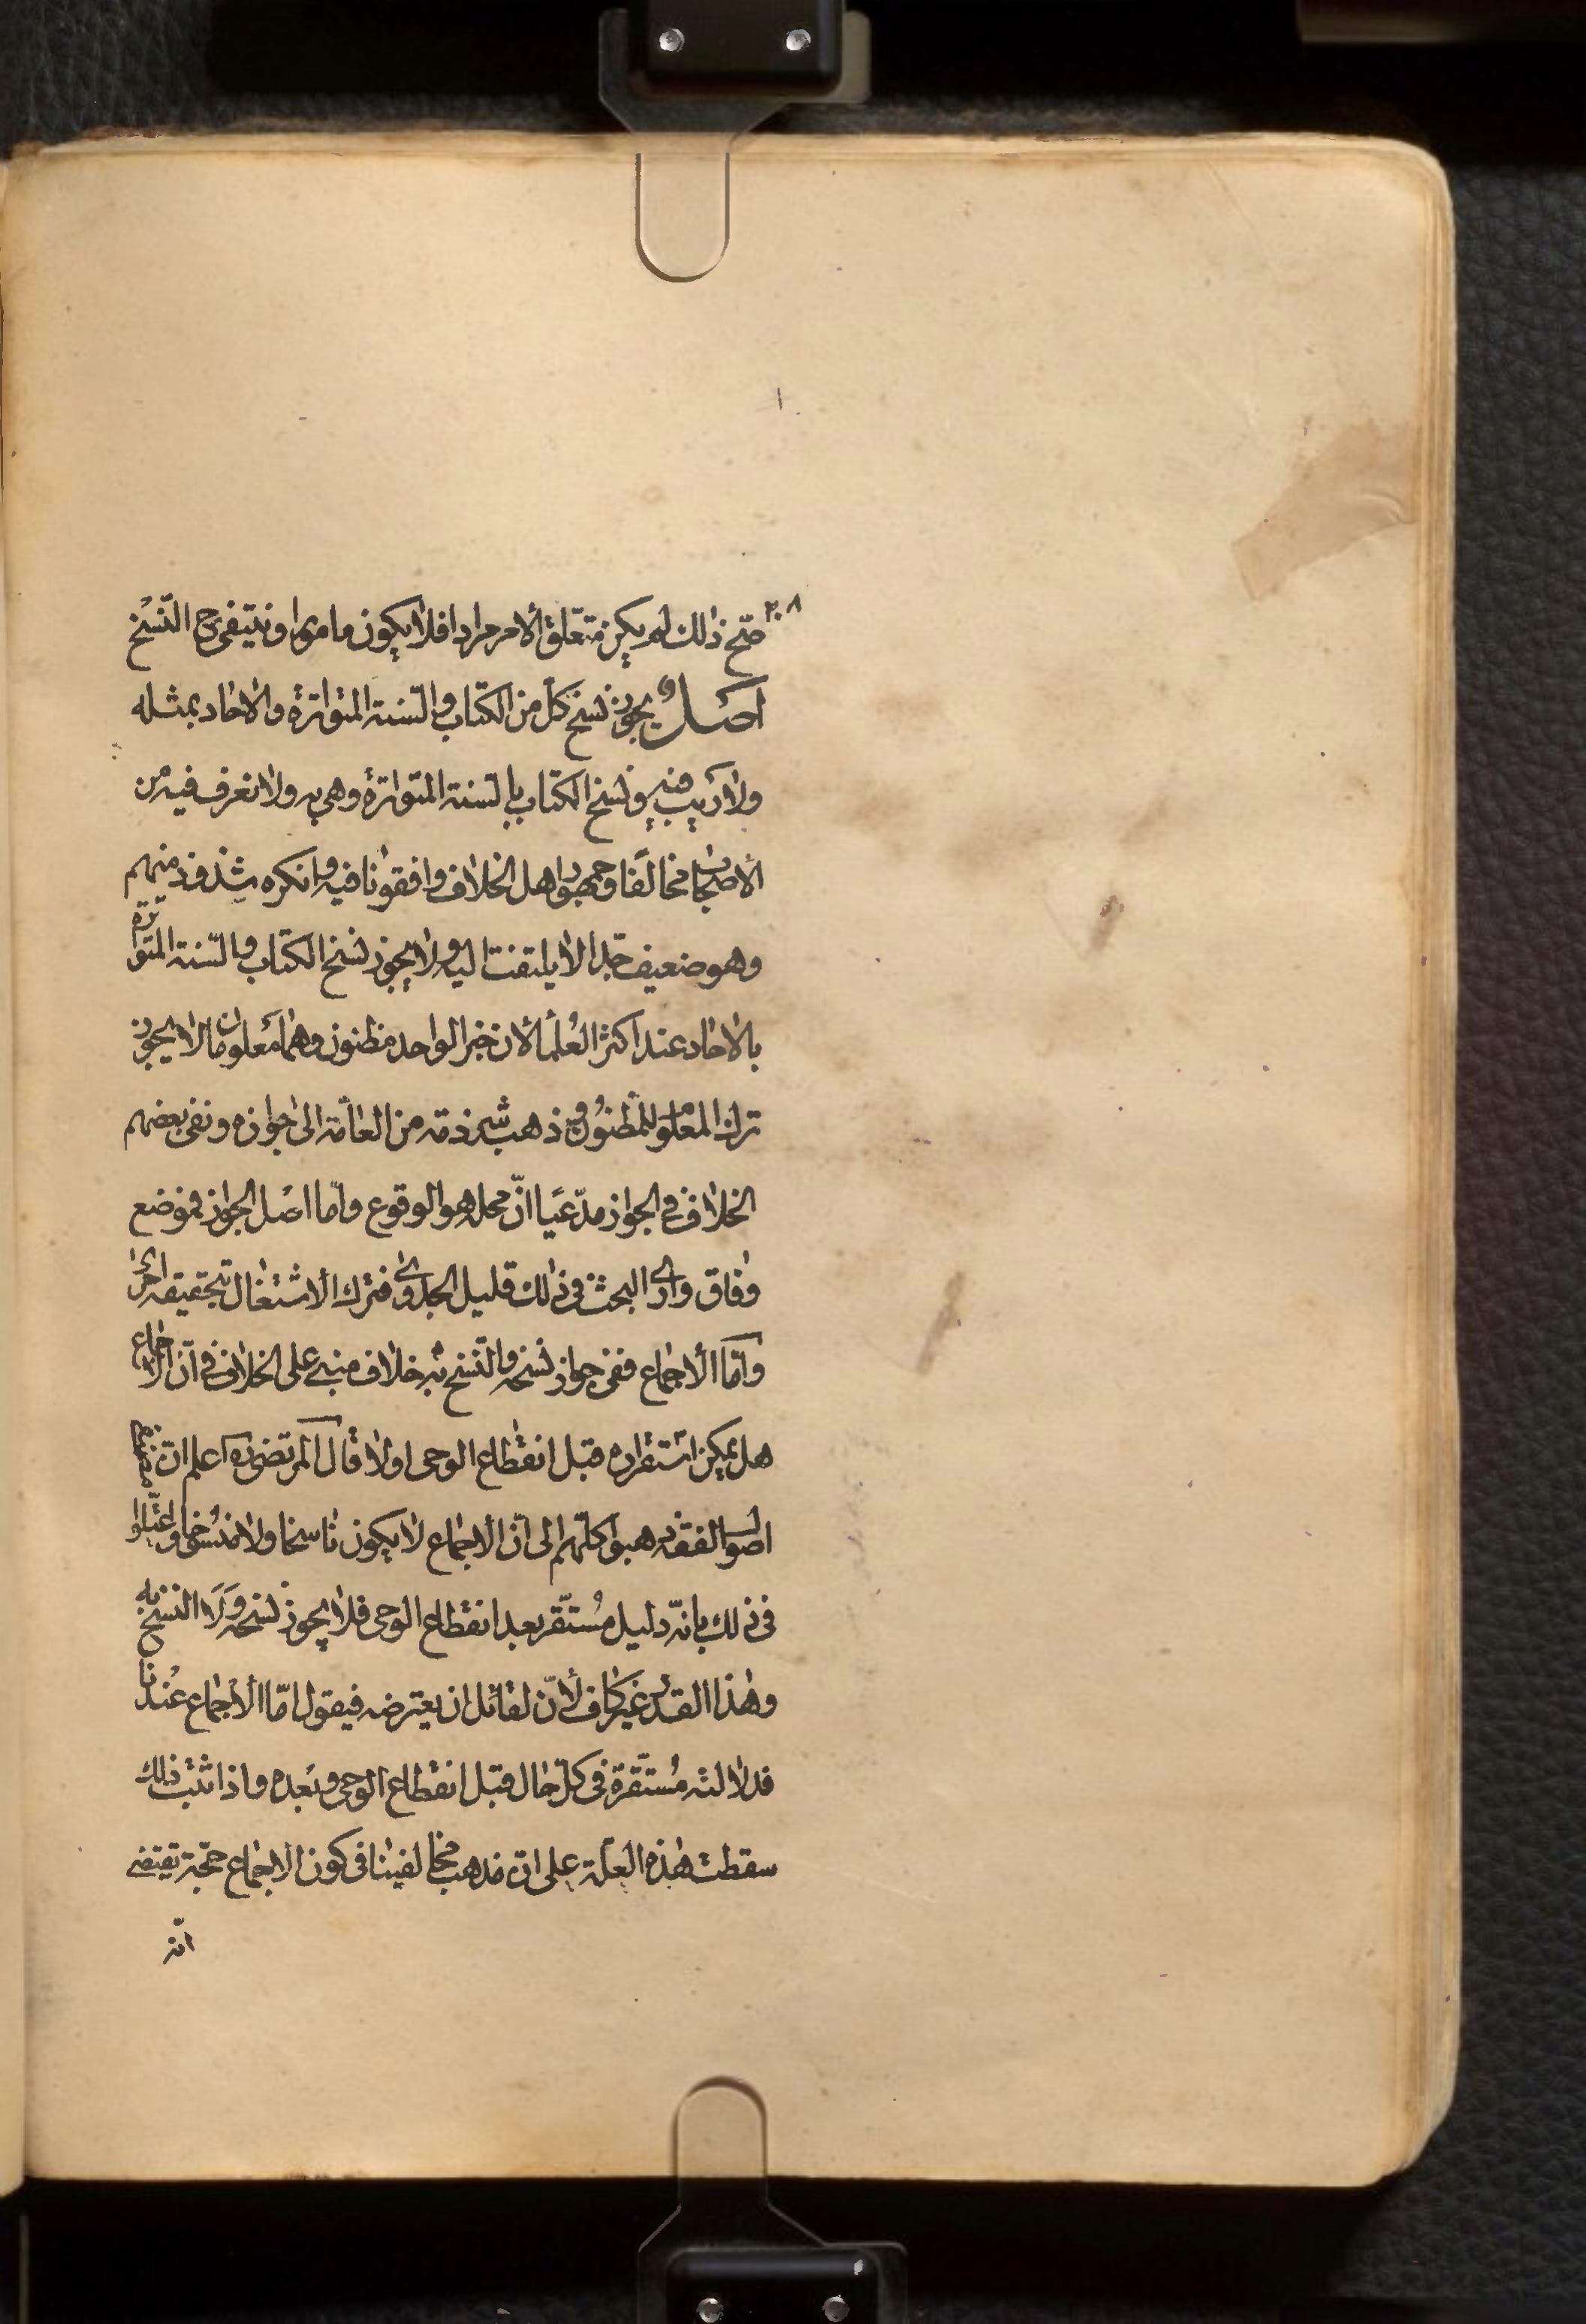 ٢٠٨
صحّ ذلك لم يكن متعلّق الأمر مرادا فلا يكون مامورا وينتفى ح النّسخ
اصل يجوز نسخ كلّ من الكتاب والسّنة المتواترة والاحاد بمثله
ولا ريب فيه ونسخ الكتاب بالسنة المتواترة وهي به ولا نعرف فيه من
الأصحاب مخالفًا وجمهور اهل الخلاف وافقونا فيه وانكره شذوذ منهم
وهو ضعيف جدا لا يلتفت اليه ولا يجوز نسخ الكتاب والسّنة المتواترة
بالاحاد عند اكثر العلماء لأن خبر الواحد مظنون وهما معلومان ولا يجوز
ترك المعلوم للمظنون وذهب شرذمة من العامّة الى جوازه ونفى بعضهم
الخلاف في الجواز مدّعيًا انّ محله هو الوقوع وامّا اصل الجواز فموضع
وفاق وارى البحث في ذلك قليل الجدوى فترك الاشتغال بتحقيقه احرى
وامّا الأجماع ففي جواز نسخه والنّسخ به خلاف مبني على الخلاف في انّ الأجماع
هل يمكن استقراره قبل انقطاع الوحى اولا قال المرتضى ره اعلم ان
اصول الفقه ذهبوا كلّهم الى انّ الأجماع لا يكون ناسخا ولا منسوخا واعتلّوا
في ذلك بانّه دليل مُستقّر بعد انقطاع الوحى فلا يجوز نسخه ولا النسخ به
وهذا القدر غير كاف لأنّ لقائل ان يعترضه فيقول امّا الأجماع عندنا
فدلالته مُستقّرة في كلّ حال قبل انقطاع الوحى وبعده واذا ثبت ذلك
سقطت هذه العلّة على انّ مذهب مخالفينا في كون الأجماع حجّة يقتضى
انّه